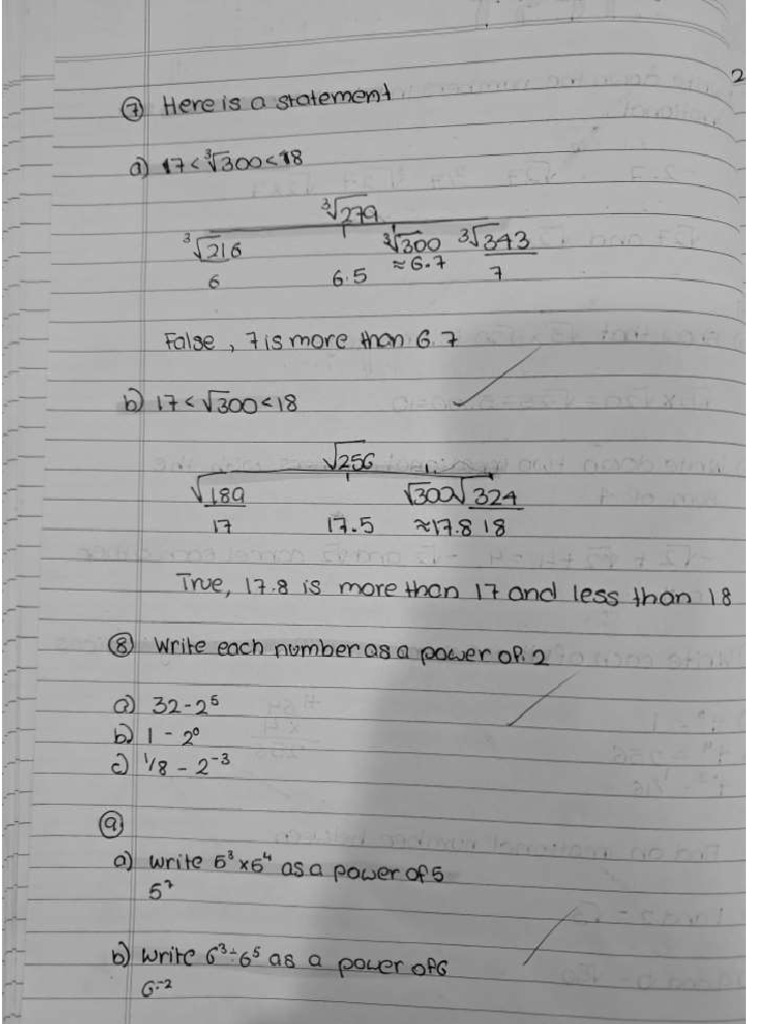 2
⑦ Here is a statement
a) 17 < ∛300 < 18
∛279
∛216 ∛300 ∛343
6 6.5 ≈6.7 7
False, 7 is more than 6.7
b) 17 < √300 < 18
√256
√189 √300 √324
17 17.5 ≈17.8 18
True, 17.8 is more than 17 and less than 18
⑧ Write each number as a power of 2
a) 32 - 2⁵
b) 1 - 2⁰
c) 1/8 - 2⁻³
⑨
a) Write 5³ x 5⁴ as a power of 5
5⁷
b) Write 6³ ÷ 6⁵ as a power of 6
6⁻²